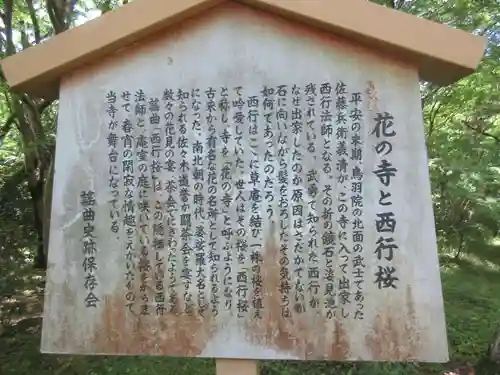 花の寺と西行桜
平安の末期、鳥羽院の北面の武士であった
佐藤兵衛義清が、この寺に入って出家し
西行法師となる。その折の鏡石と法見池が
残されている。武勇で知られた西行が、
なぜ出家したのか原因はさだかでないが
石に向いながら髪をおろしたその気持ちは
如何であったのだろう。
西行はここに草庵を結び一株の桜を植え
て吟愛していた。世人はその桜を「西行桜」
と称し、寺を「花の寺」と呼ぶようになり
古来から有名な花の名所として知られるよう
になった。南北朝の時代、婆娑羅大名として
知られる佐々木道誉の闘茶会を催すなど
数々の花見の宴、茶会でにぎわったようである。
謡曲「西行桜」はこの隠栖している西行
法師と、庵室の庭に咲いている桜とからま
せて、春宵の閑寂な情趣をえがいたもので
当寺が舞台になっている。
謡曲史跡保存会